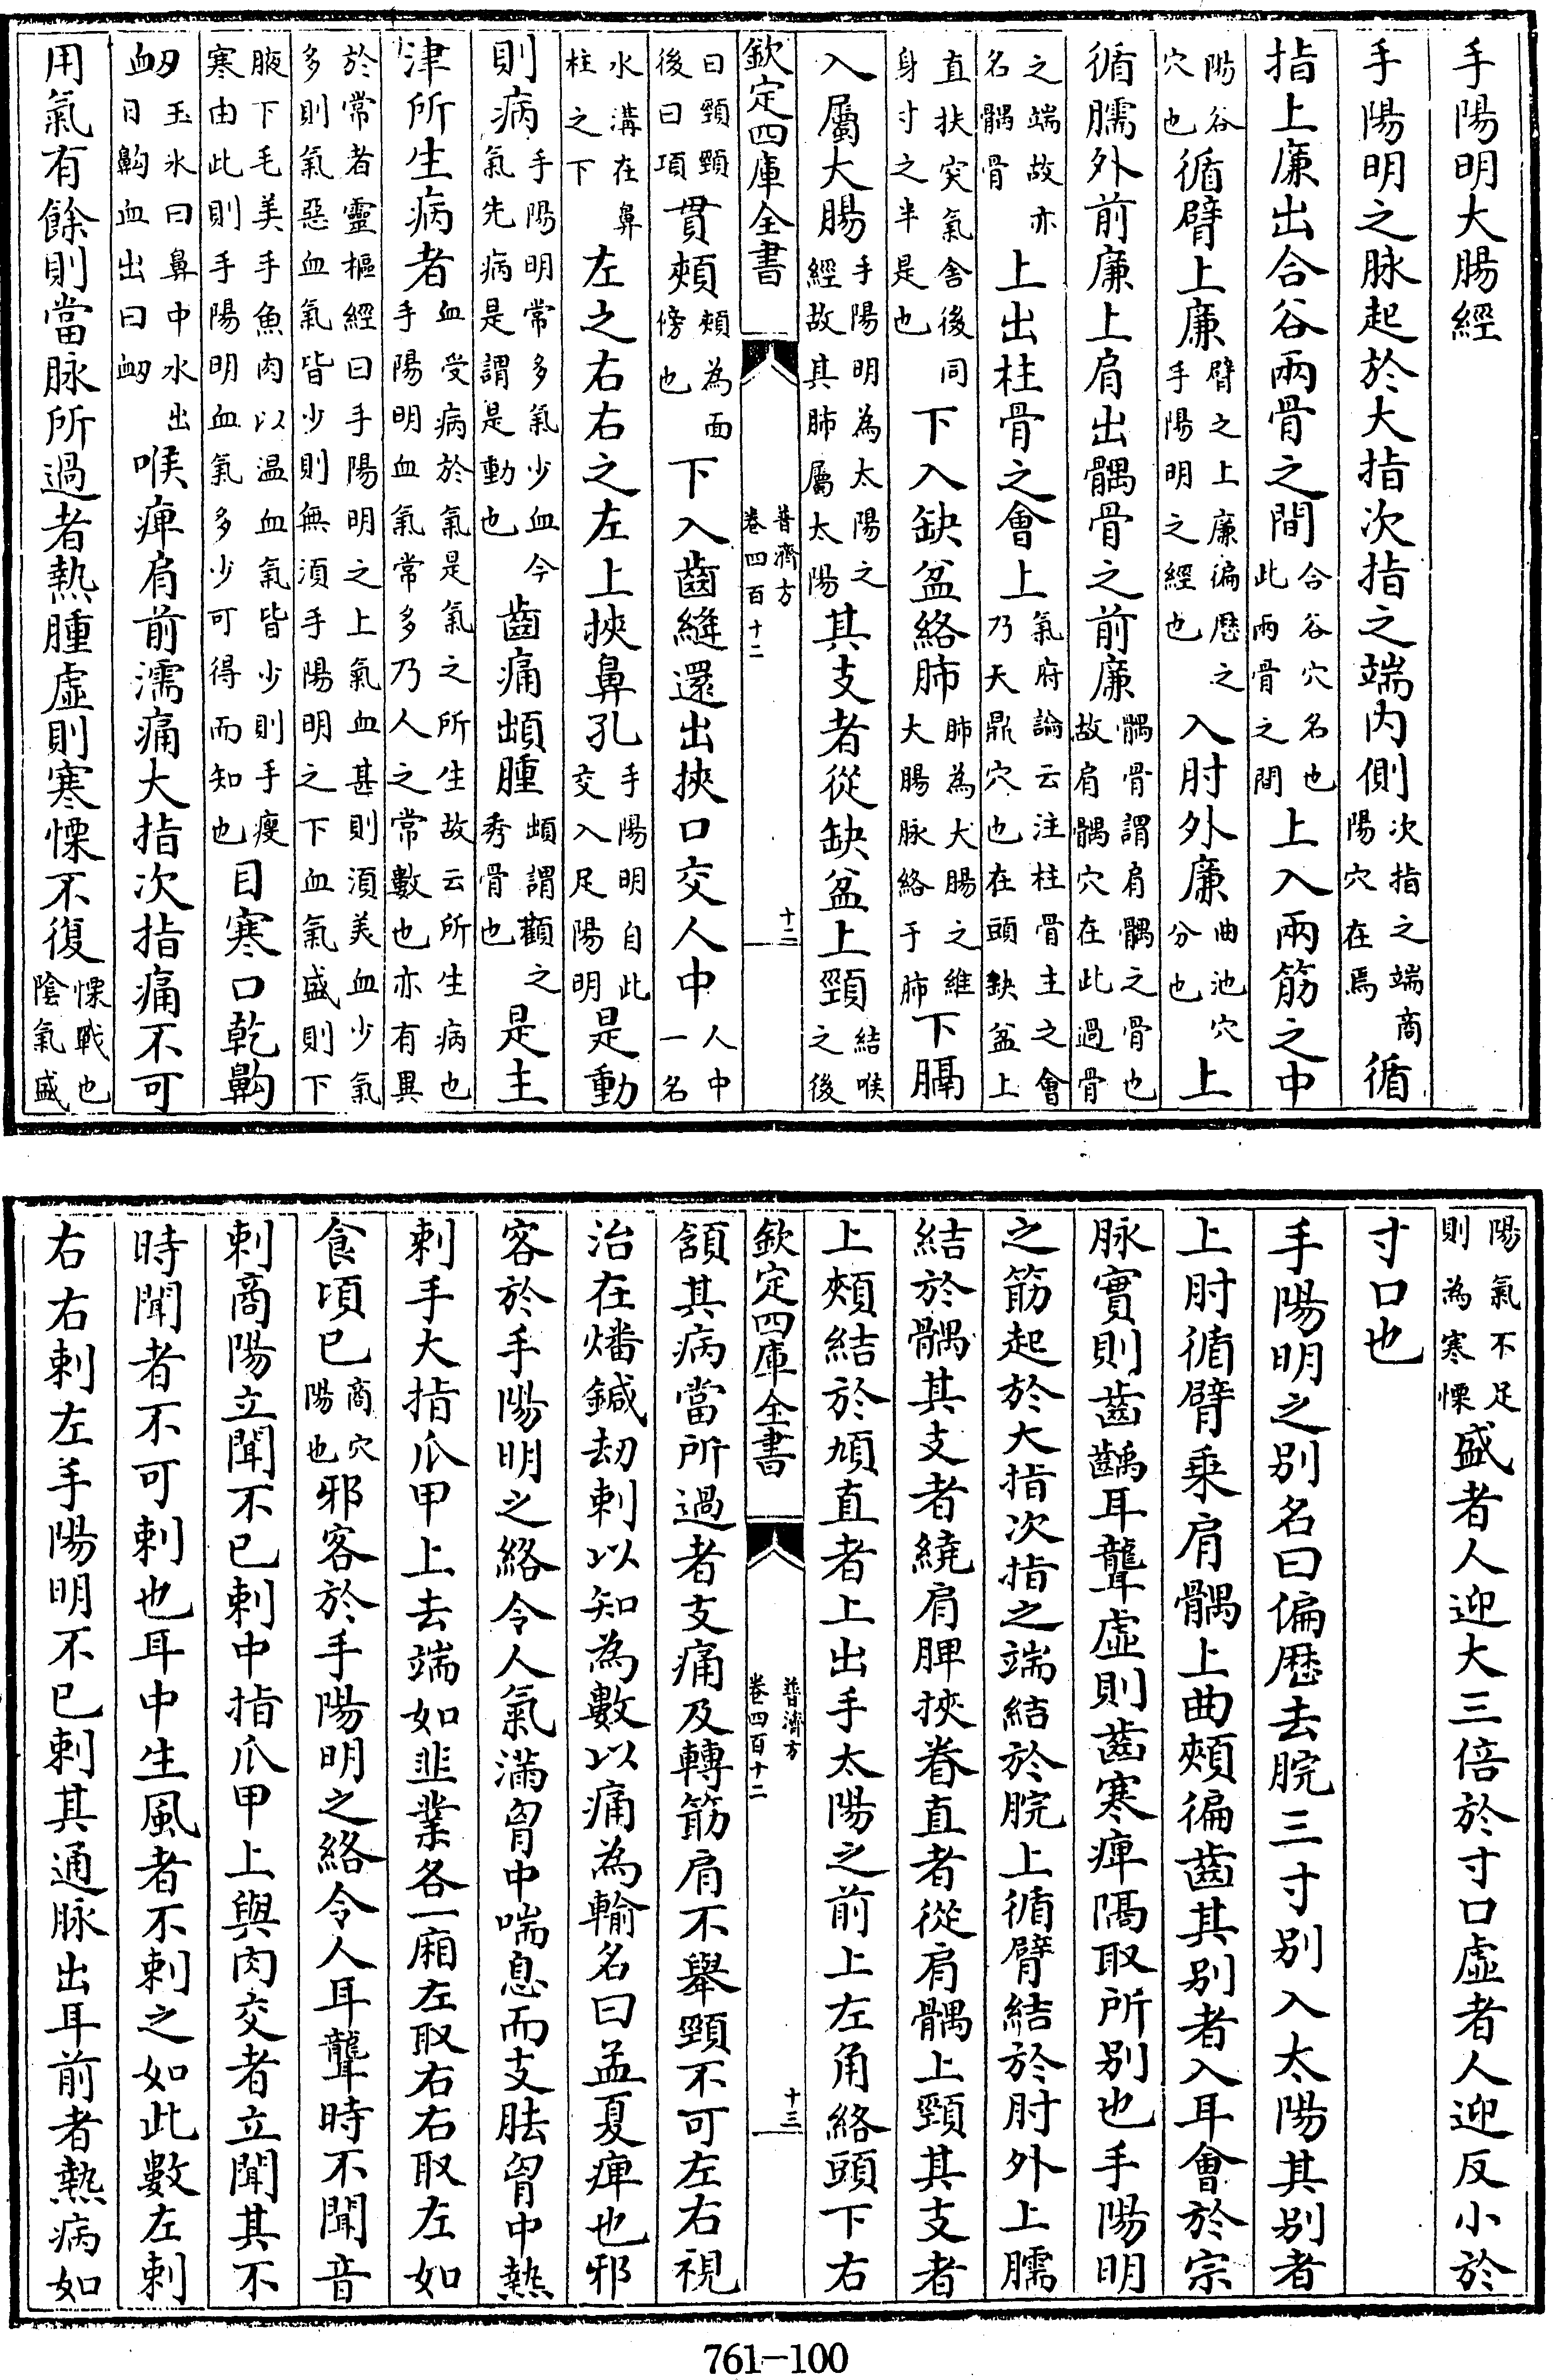 手陽明大腸經
手陽明之脉起於大指次指之端内側次指之端商陽穴在焉循
指上廉出合谷兩骨之間合谷穴名也此兩骨之間上入兩筋之中
陽谷穴也循臂上廉臂之上廉徧歴之手陽明之經也入肘外廉曲池穴分也上
循臑外前廉上肩出髃骨之前廉髃骨謂肩髃之骨也故肩髃穴在此過骨
之端故亦名髃骨上出柱骨之會上氣府論云注柱骨主之會乃天鼎穴也在頭缺盆上
直扶突氣舍後同身寸之半是也下入缺盆絡肺肺為大腸之維大腸脉絡于肺下膈
入屬大腸手陽明為太陽之經故其肺屬太陽其支者從缺盆上頸結喉之後
欽定四庫全書
普濟方
卷四百十二
十二
曰頸頸後曰項貫頰頰為面傍也下入齒縫還出挾口交人中人中一名
水溝在鼻柱之下左之右右之左上挾鼻孔手陽明自此交入足陽明是動
則病手陽明常多氣少血今氣先病是謂是動也齒痛䪼腫䪼謂顴之秀骨也是主
津所生病者血受病於氣是氣之所生故云所生病也手陽明血氣常多乃人之常數也亦有異
於常者靈樞經曰手陽明之上氣血甚則須美血少氣多則氣惡血氣皆少則無須手陽明之下血氣盛則下
腋下毛美手魚肉以温血氣皆少則手瘦寒由此則手陽明血氣多少可得而知也目寒口乾鼽
衂王氷曰鼻中水出血曰鼽血出曰衂喉痺肩前濡痛大指次指痛不可
用氣有餘則當脉所過者熱腫虛則寒慄不復慄戰也陰氣盛
陽氣不足則為寒慄盛者人迎大三倍於寸口虛者人迎反小於
寸口也
手陽明之别名曰偏歴去腕三寸别入太陽其别者
上肘循臂乘肩髃上曲頰徧齒其别者入耳會於宗
脉實則齒齲耳聾虛則齒寒痺隔取所别也手陽明
之筋起於大指次指之端結於腕上循臂結於肘外上臑
結於髃其支者繞肩胛挾脊直者從肩髃上頸其支者
上頰結於頄直者上出手太陽之前上左角絡頭下右
欽定四庫全書
普濟方
卷四百十二
十三
頷其病當所過者支痛及轉筋肩不舉頸不可左右視
治在燔鍼刼刺以知為數以痛為輸名曰孟夏痺也邪
客於手陽明之絡令人氣滿胷中喘息而支胠胷中熱
刺手大指爪甲上去端如韭葉各一痏左取右右取左如
食頃已商穴陽也邪客於手陽明之絡令人耳聾時不聞音
刺商陽立聞不已刺中指爪甲上與肉交者立聞其不
時聞者不可刺也耳中生風者不刺之如此數左刺
右右刺左手陽明不已刺其通脉出耳前者熱病如
761-100